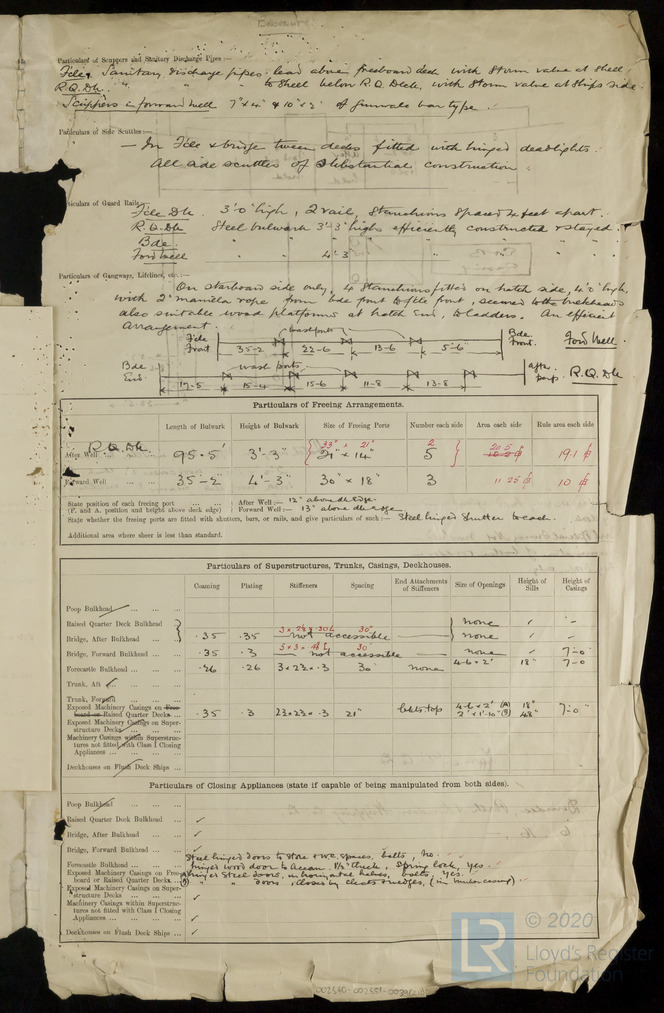 Particulars of Scuppers and Sanitary Discharge Pipes :—
Fcle. Sanitary discharge pipes lead above freeboard deck with storm valve at shell
R.Q.Dk. " " to shell below R.Q. Deck, with storm valve at ships side.
Scuppers in forward well 7"x4" & 10"x3" of gunwale bar type.
Particulars of Side Scuttles :—
— In Fcle & bridge tween decks fitted with hinged deadlights.
All side scuttles of substantial construction
Particulars of Guard Rails
Fcle Dk. 3'-0" high, 2 rail, stanchions spaced 4 feet apart.
R.Q.Dk Steel bulwark 3'-3" high efficiently constructed & stayed.
Bde. " " "
Ford Well " 4'-3" "
Particulars of Gangways, Lifelines, etc. :—
On starboard side only, 4 stanchions fitted on hatch side, 4'-0" high,
with 2" manilla rope from bde front to fcle front, secured to the bulkheads
also suitable wood platforms at hatch end, & ladders. An efficient
arrangement.
Fcle Front wash ports Bde Front. Ford Well.
35-2 22-6 13-6 5'-6"
Bde End. wash ports after R.Q.Dk
17-5 15-4 15-6 11-8 13-8
Particulars of Freeing Arrangements.
Length of Bulwark Height of Bulwark Size of Freeing Ports Number each side Area each side Rule area each side
33" x 21" 2 20.5
R.Q.Dk.
After Well 95-5' 3'-3" 21" x 14" 5 19.1
Forward Well 35-2" 4'-3" 30" x 18" 3 11.25 10
State position of each freeing port
(F. and A. position and height above deck edge)
After Well :— 12" above dk edge
Forward Well :— 13" above dk edge
State whether the freeing ports are fitted with shutters, bars, or rails, and give particulars of such :— Steel hinged shutter to each.
Additional area where sheer is less than standard.
Particulars of Superstructures, Trunks, Casings, Deckhouses.
Coaming Plating Stiffeners Spacing End Attachments of Stiffeners Size of Openings Height of Sills Height of Casings
Poop Bulkhead
Raised Quarter Deck Bulkhead none
3 x 2½ x .30 L 30"
Bridge, After Bulkhead .35 .35 not accessible none
5 x 3 x .48 L 30"
Bridge, Forward Bulkhead .35 .3 not accessible none 7-0
Forecastle Bulkhead .26 .26 3x2½x.3 30 none 4-6x2' 18" 7-0
Trunk, Aft
Trunk, Forward
Exposed Machinery Casings on Freeboard or Raised Quarter Decks .35 .3 2½x2½x.3 21" bkts top 4-6x2' (A) 18" 7-0
2'x1'-10" (B) 48"
Exposed Machinery Casings on Superstructure Decks
Machinery Casings within Superstructures not fitted with Class I Closing Appliances
Deckhouses on Flush Deck Ships
Particulars of Closing Appliances (state if capable of being manipulated from both sides).
Poop Bulkhead
Raised Quarter Deck Bulkhead
Bridge, After Bulkhead
Bridge, Forward Bulkhead
Steel hinged doors to store & W.C. spaces, bolts, no.
Forecastle Bulkhead hinged wood door to accom. 1½" thick, spring lock, yes.
Exposed Machinery Casings on Freeboard or Raised Quarter Decks hinged steel doors, in horizontal halves, bolts, yes.
(B) " " doors, closed by cleats & wedges, (in bunker casing).
Exposed Machinery Casings on Superstructure Decks
Machinery Casings within Superstructures not fitted with Class I Closing Appliances
Deckhouses on Flush Deck Ships
LR © 2020
Lloyd's Register
Foundation